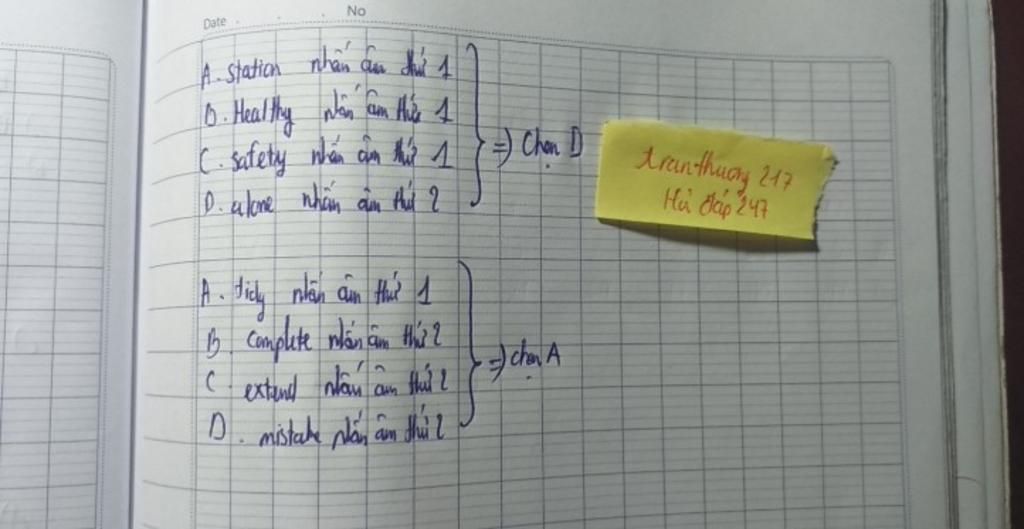 Date
No
A. station nhấn âm thứ 1
B. Healthy nhấn âm thứ 1
C. safety nhấn âm thứ 1
D. alone nhấn âm thứ 2
=> Chọn D
tranthuong 217
Hỏi đáp 247
A. tidy nhấn âm thứ 1
B. Complete nhấn âm thứ 2
C. extend nhấn âm thứ 2
D. mistake nhấn âm thứ 2
=> chọn A